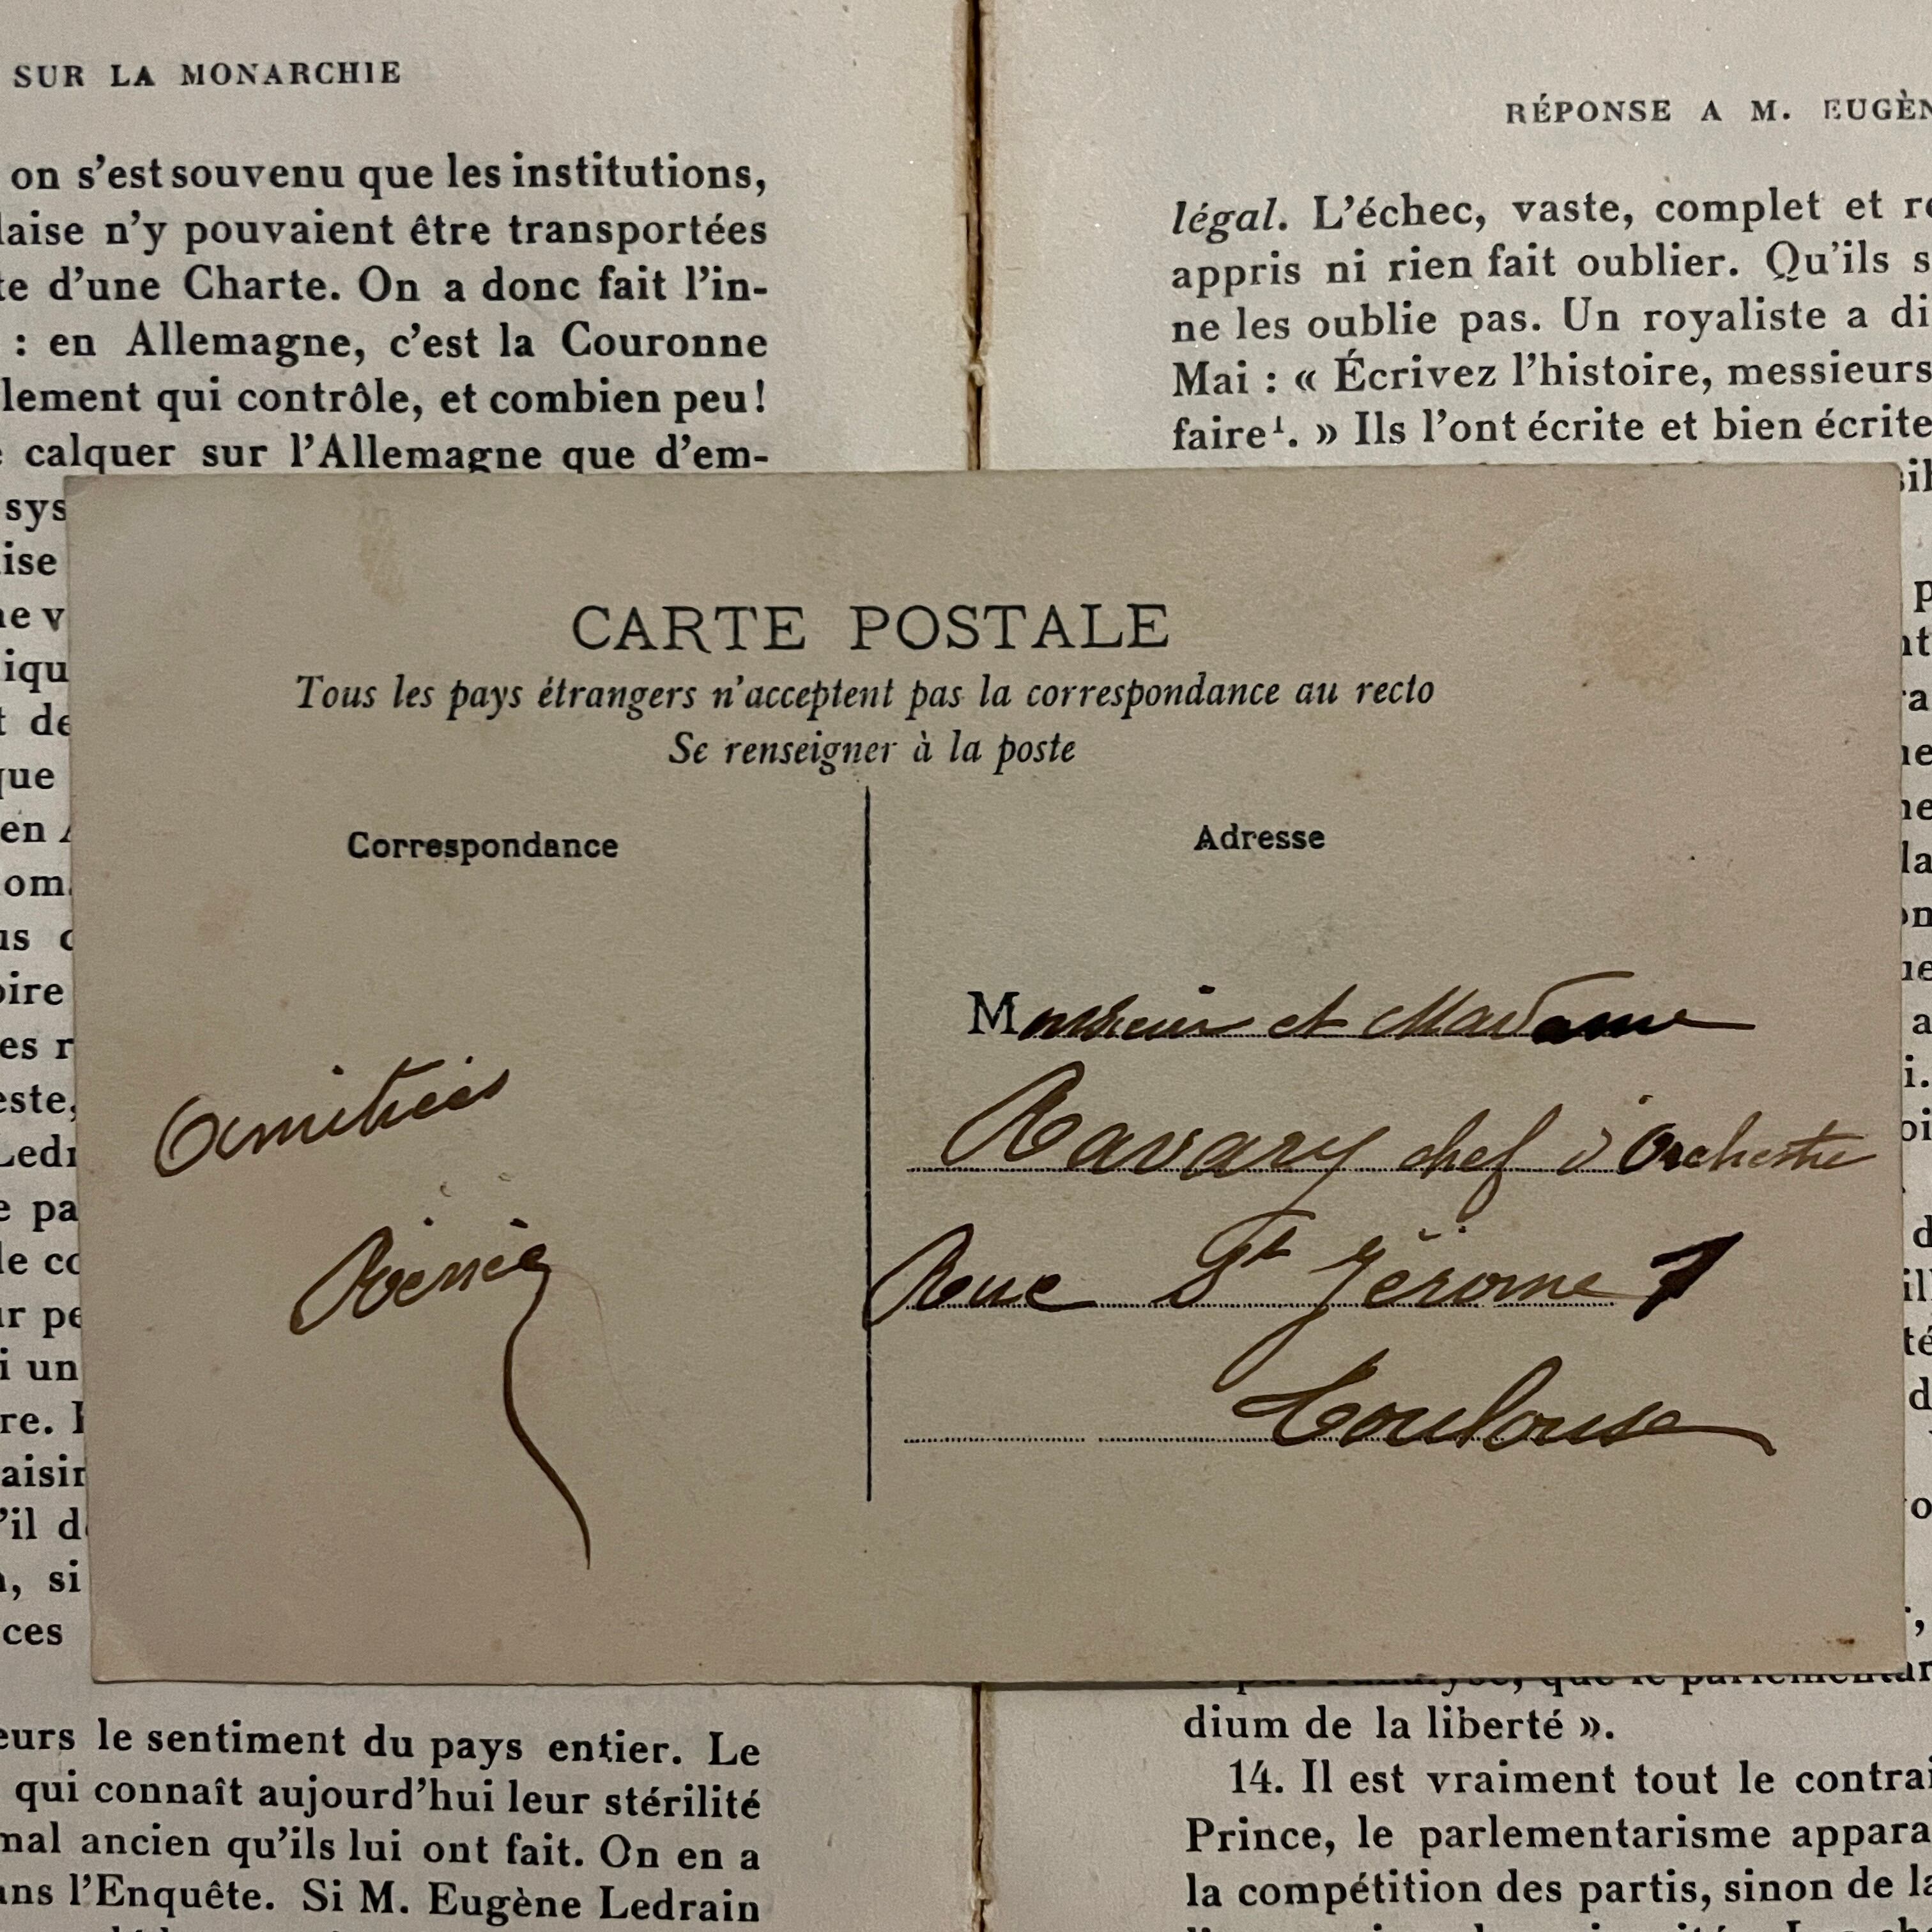 SUR LA MONARCHIE
on s'est souvenu que les institutions,
laise n'y pouvaient être transportées
te d'une Charte. On a donc fait l'in-
: en Allemagne, c'est la Couronne
lement qui contrôle, et combien peu!
calquer sur l'Allemagne que d'em-
sys
ise
ne v
iqu
t de
que
en
om
us
oire
es r
este,
Ledr
e pa
le co
ur pe
i un
re.
aisir
'il d
, si
ces
eurs le sentiment du pays entier. Le
qui connaît aujourd'hui leur stérilité
mal ancien qu'ils lui ont fait. On en a
ans l'Enquête. Si M. Eugène Ledrain
RÉPONSE A M. EUGÈN
légal. L'échec, vaste, complet et re
appris ni rien fait oublier. Qu'ils s
ne les oublie pas. Un royaliste a di
Mai : « Écrivez l'histoire, messieurs
faire¹. » Ils l'ont écrite et bien écrite
CARTE POSTALE
Tous les pays étrangers n'acceptent pas la correspondance au recto
Se renseigner à la poste
Correspondance
Amitiés
Adresse
Monsieur et Madame
Ravary chef d'Orchestre
Rue St Jérome 7
Toulouse
dium de la liberté ».
14. Il est vraiment tout le contrai
Prince, le parlementarisme appara
la compétition des partis, sinon de la